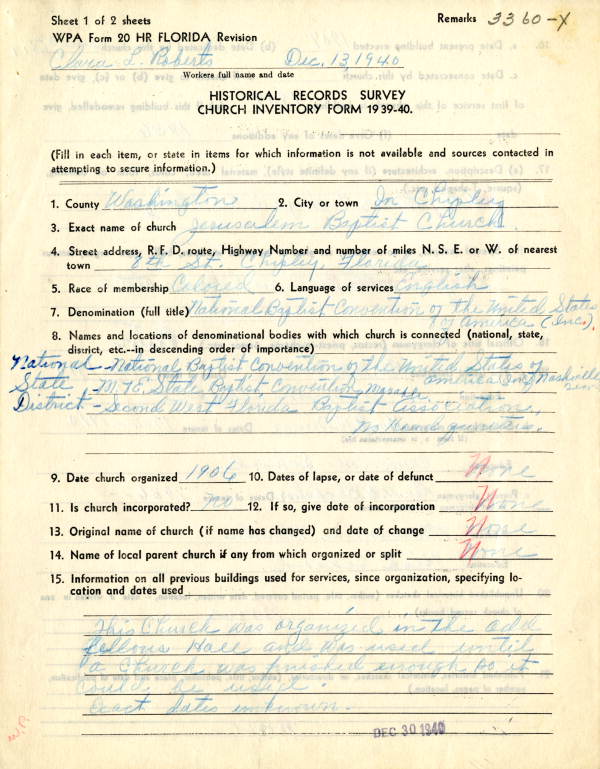 Sheet 1 of 2 sheets Remarks 3360-X
WPA Form 20 HR FLORIDA Revision
Clara L. Roberts Dec. 13, 1940
Workers full name and date
HISTORICAL RECORDS SURVEY
CHURCH INVENTORY FORM 1939-40.
(Fill in each item, or state in items for which information is not available and sources contacted in
attempting to secure information.)
1. County Washington 2. City or town In Chipley
3. Exact name of church Jerusalem Baptist Church
4. Street address, R. F. D. route, Highway Number and number of miles N. S. E. or W. of nearest
town 8th St. Chipley, Florida
5. Race of membership Colored 6. Language of services English
7. Denomination (full title) National Baptist Convention of the United States
of America (Inc.).
8. Names and locations of denominational bodies with which church is connected (national, state,
district, etc.--in descending order of importance)
National - National Baptist Convention of the United States of
America Nashville
State - State Baptist Convention
District - Second West Florida Baptist Associations,
No Headquarters.
9. Date church organized 1906 10. Dates of lapse, or date of defunct None
11. Is church incorporated? no 12. If so, give date of incorporation None
13. Original name of church (if name has changed) and date of change None
14. Name of local parent church if any from which organized or split None
15. Information on all previous buildings used for services, since organization, specifying lo-
cation and dates used
This Church was organized in the odd
fellows Hall and was used until
a Church was finished enough so it
could be used.
Exact dates unknown.
DEC 30 1940